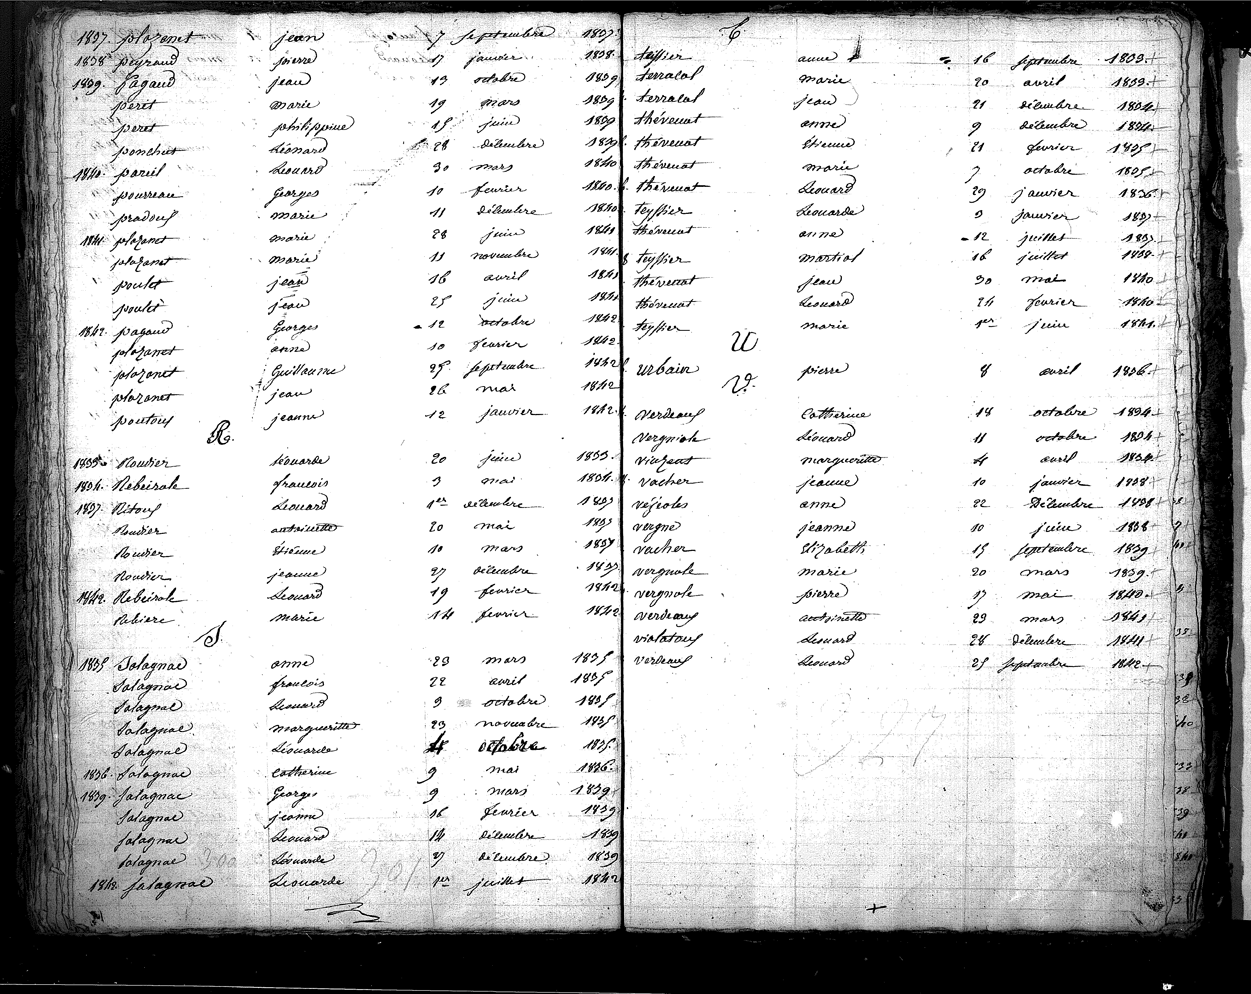 1837. plazanet jean 7 septembre 1837.
1838 peyraud pierre 17 janvier 1838.
1839. pagaud jean 13 octobre 1839
peret marie 19 mars 1839
peret philippine 15 juin 1839
ponchut Léonard 28 décembre 1839
1840. pareil Léonard 30 mars 1840
pourreau Georges 10 fevrier 1840.
pradoux marie 11 décembre 1840
1841. plazanet marie 28 juin 1841
plazanet marie 11 novembre 1841.
poulet jean 16 avril 1841
poulet jean 25 juin 1841
1842. pagaud Georges 12 octobre 1842.
plazanet anne 10 fevrier 1842.
plazanet Guillaume 25 septembre 1842
plazanet jean 26 mai 1842
pontoux jeanne 12 janvier 1842.
R.
1833. Roudier Léonarde 20 juin 1833.
1834. Rebeirole francois 3 mai 1834.
1837. Ritoux Léonard 1er décembre 1837
Roudier antoinette 20 mai 1837
Roudier Étienne 10 mars 1837
Roudier jeanne 27 décembre 1837
1842. Rebeirole Léonard 19 fevrier 1842
Rebiere marie 14 fevrier 1842
S.
1835 Salagnac anne 23 mars 1835
Salagnac francois 22 avril 1835
Salagnac Léonard 9 octobre 1835
Salagnac margueritte 23 novembre 1835
Salagnac Léonarde 4 octobre 1835
1836. Salagnac catherine 9 mai 1836.
1839. Salagnac Georges 9 mars 1839
Salagnac jeanne 16 fevrier 1839
Salagnac Léonard 14 décembre 1839
Salagnac Léonarde 27 décembre 1839
1842. Salagnac Léonarde 1er juillet 1842
301
T.
teyssier anne 16 septembre 1833.
terracol marie 20 avril 1833.
terracol jean 21 décembre 1834.
thévenat anne 9 décembre 1834.
thévenat Étienne 21 fevrier 1835
thévenat marie 7 octobre 1835
thévenat Léonard 29 janvier 1836
teyssier Léonarde 9 janvier 1837
thévenat anne 12 juillet 1837.
teyssier martial 16 juillet 1838.
thévenat jean 30 mai 1840
thévenat Léonard 24 fevrier 1840.
teyssier marie 1er juin 1841.
U
urbain pierre 8 avril 1836.
V.
verdeaux catherine 18 octobre 1834.
vergniole Léonard 11 octobre 1834
vinzent margueritte 4 avril 1834
vacher jeanne 10 janvier 1838
anne 22 Décembre 1838
vergne jeanne 10 juin 1838
vacher Elizabeth 15 septembre 1839
vergnole marie 20 mars 1839.
vergnole pierre 17 mai 1840.
verdeaux antoinette 29 mars 1841
violatoux Léonard 28 décembre 1841
verdeaux Léonard 25 septembre 1842.